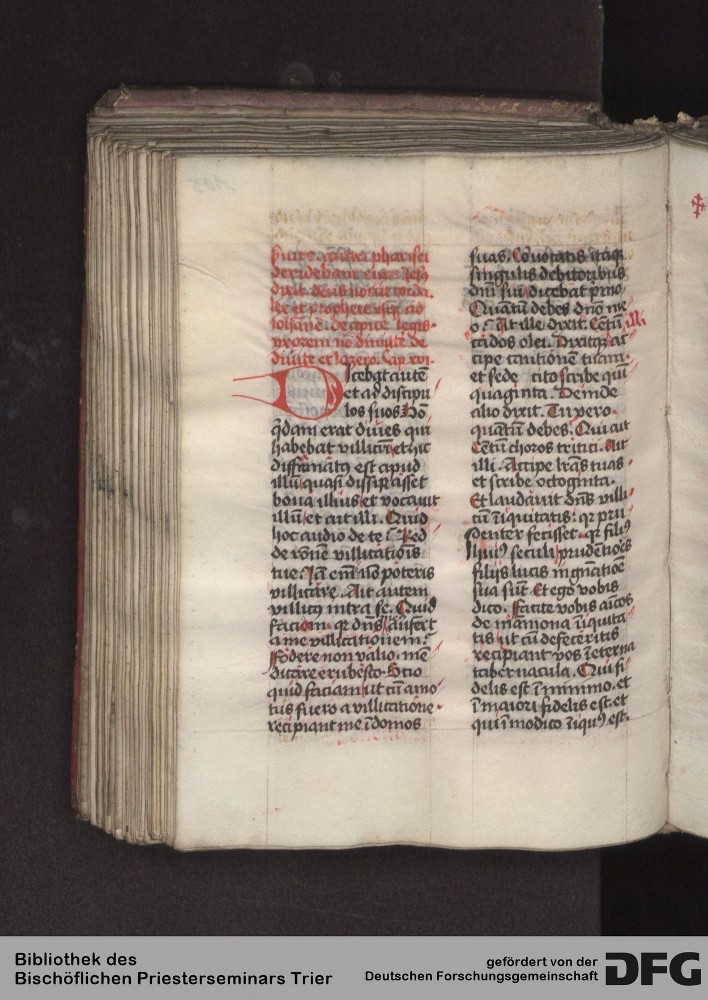 deridebant eum. Jhs
dixit. deus novit corda.
lex et prophete usq; ad
Johannē. de apice legis.
vxorem ne dimitte de
diuite et lazero. Cap. xvi.
Dicebat autē
et ad discipu
los suos. Hō
q̄dam erat diues qui
habebat villicū. et hic
diffamatꝯ est apud
illū quasi dissipasset
bona illius. et vocauit
illū. et ait illi. Quid
hoc audio de te? Red
de rōnē villicatiōīs
tue. Jā em̄ nō poteris
villicare. Ait autem
villicꝯ intra se. Quid
faciam. qꝛ dn̄s aufert
a me villicationem?
Fodere non valio. mē
dicare erubesco. Scio
quid faciam. ut cū amo
tus fuero a villicatione.
recipiant me ī domos
suas. Cōuocatis itaq;
singulis debitoribus
dn̄i sui. dicebat pͥmo.
Quātū debes dn̄o me
o. At ille dixit. Cētū
cados olei. Dixitq; illi
Accipe cautionē tuam.
et sede cito scribe qui
quaginta. Deinde
alio dixit. Tu vero.
quātū debes. Qui ait
Cētū choros tritici. Ait
illi. Accipe lr̄as tuas.
et scribe octoginta.
Et laudauit dn̄s villi
cū īiquitatis. qꝛ pru
denter fecisset. qꝛ filiꝯ
huiꝯ seculi prudētiores
filijs lucis in gn̄atiōe
sua sūt. Et ego vobis
dico. Facite vobis aīcos
de māmona īiquita
tis. ut cū defeceritis
recipiant vos ī eterna
tabernacula. Qui fi
delis est ī minimo. et
ī maiori fidelis est. et
qui ī modico īiquꝯ est.
Bibliothek des
Bischöflichen Priesterseminars Trier
gefördert von der
Deutschen Forschungsgemeinschaft
DFG